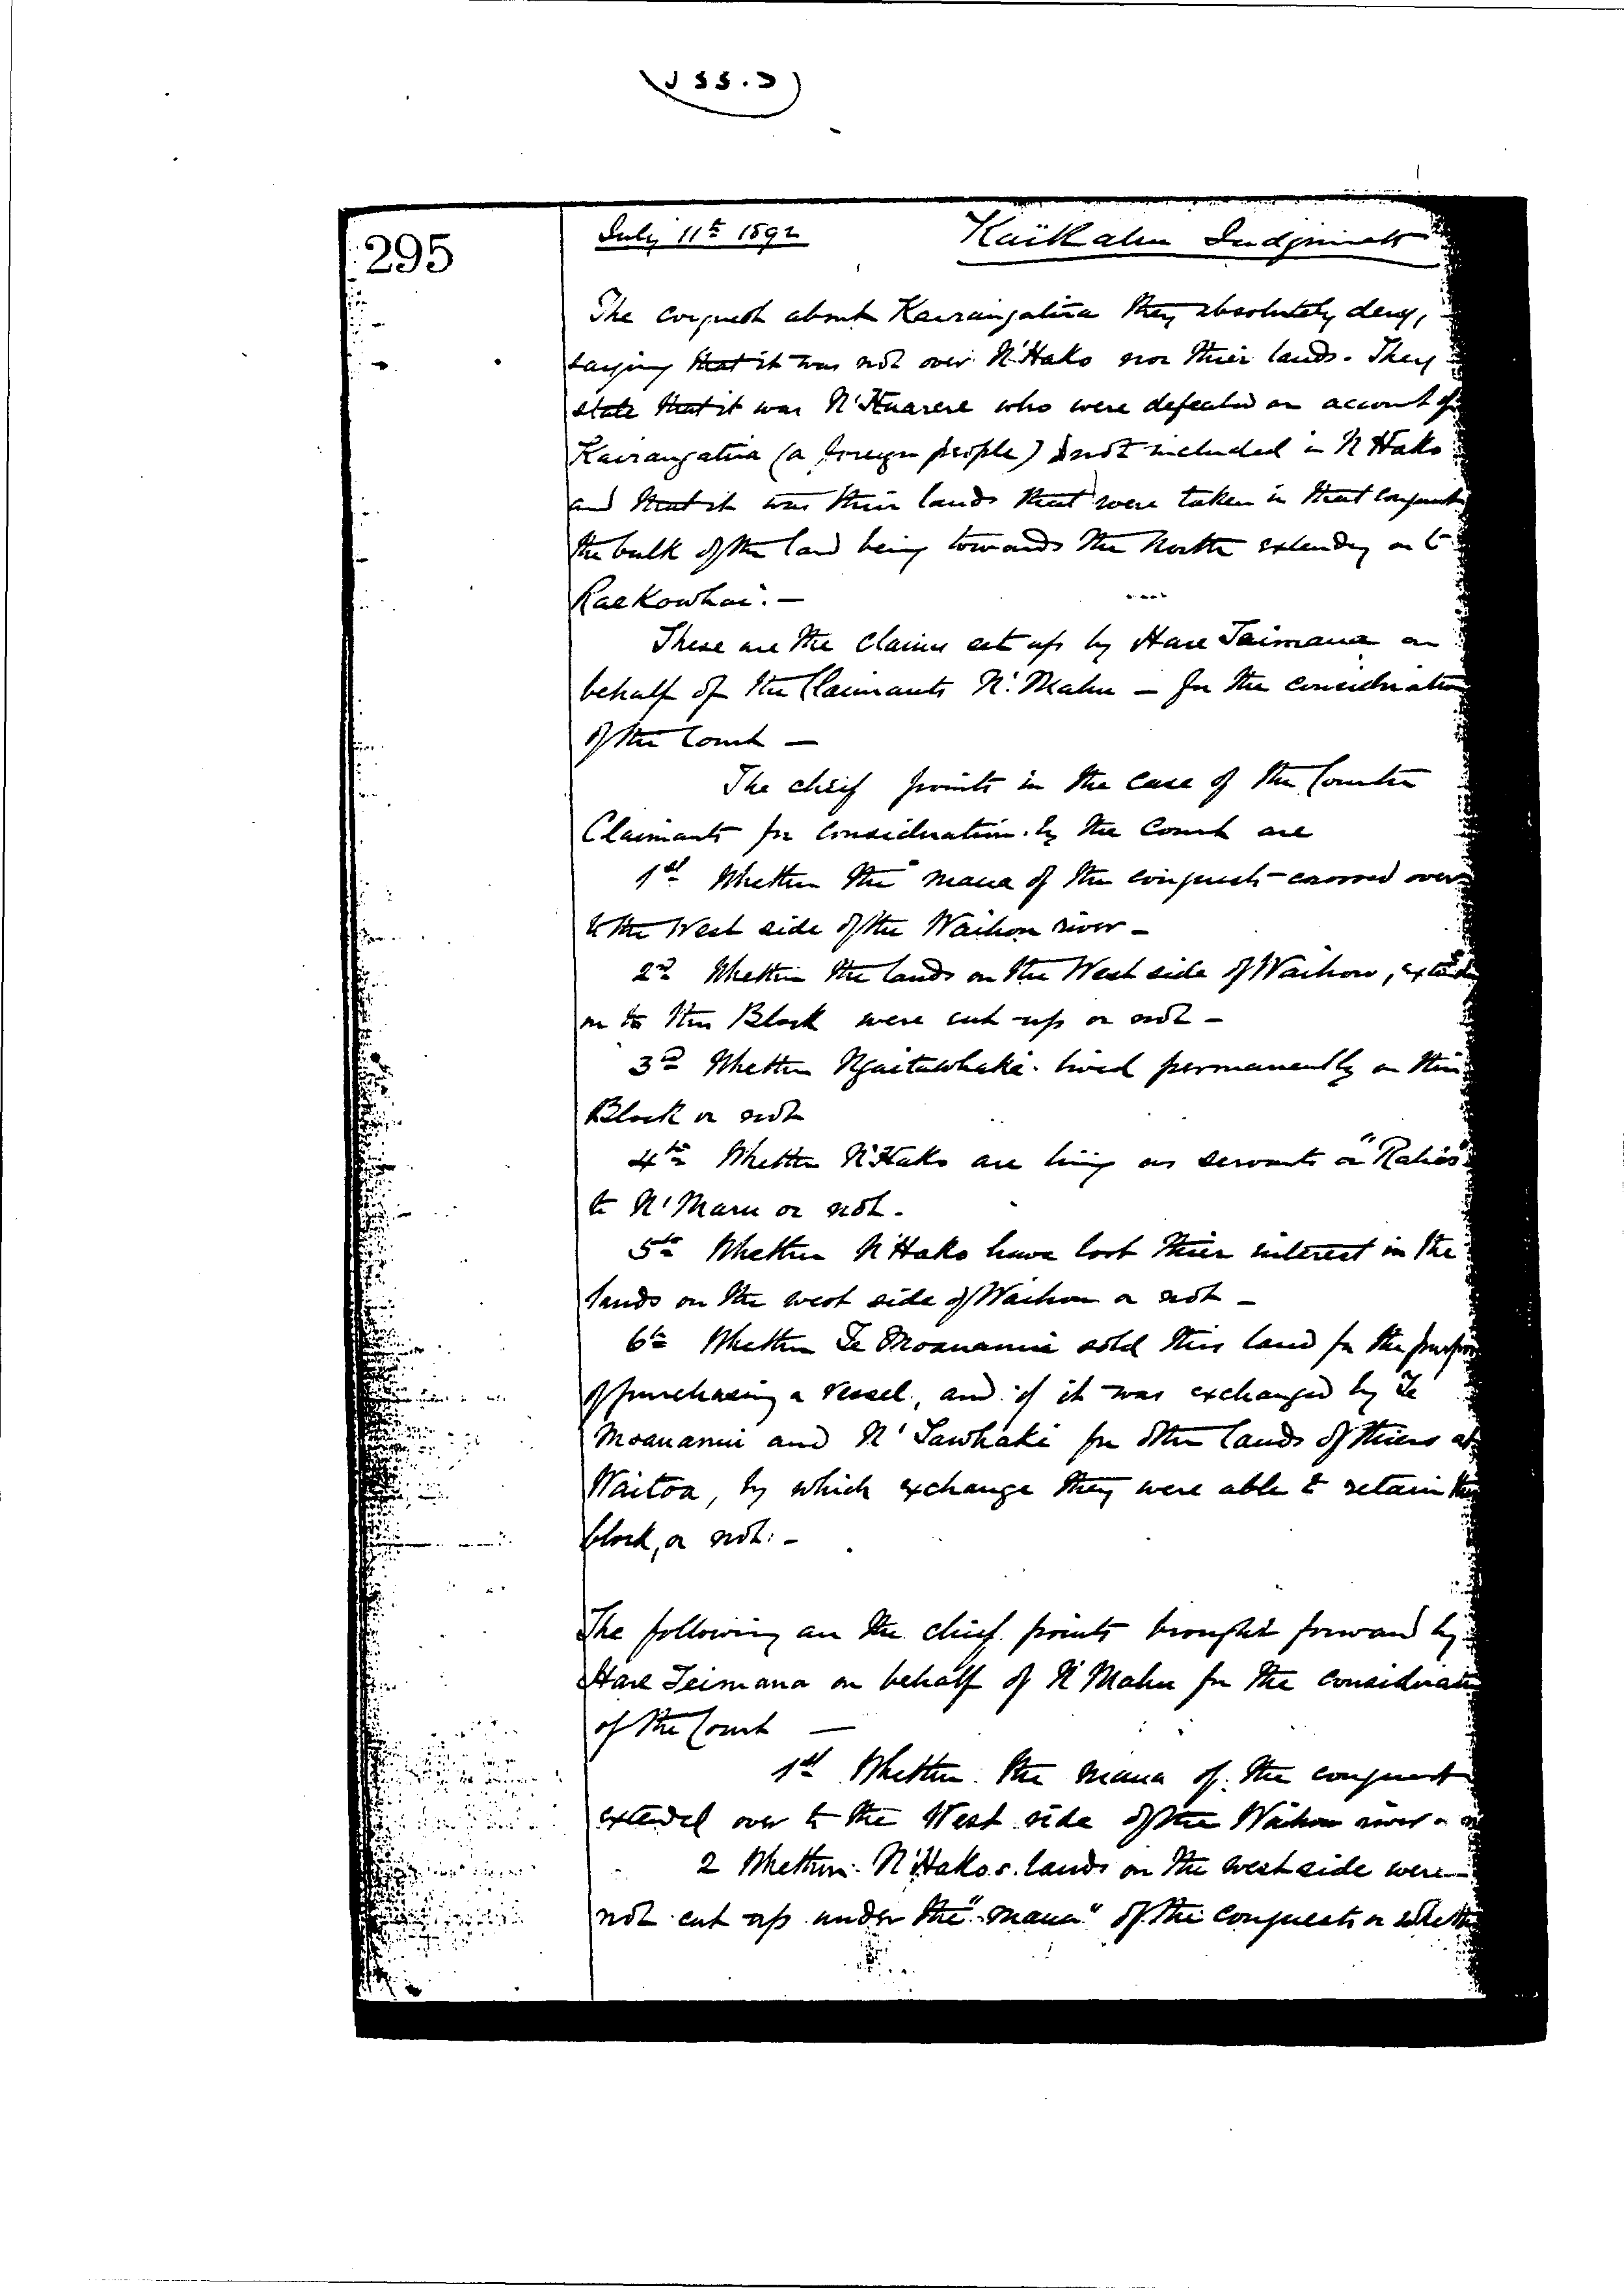 295
July 11th 1892 Kaikahu Judgment
The conquest about Kairangatira they absolutely deny,
saying that it was not over N'Hako nor thier lands. They
state that it was N'Huarere who were defeated on account of
Kairangatira (a foreign people) not included in N Hako
and that it was thier lands that were taken in that conquest
the bulk of the land being towards the North extending on to
Raekowhai. —
These are the claims set up by Hare Teimana on
behalf of the Claimants N'. Mahu — for the consideration
of the Court —
The chief points in the case of the Counter
Claimants for consideration by the Court are
1st Whether the mana of the conquest crossed over
to the West side of the Waihou river —
2nd Whether the lands on the West side of Waihou, extending
on to this Block were cut up or not —
3rd Whether Ngaitawhaki lived permanently on this
Block or not
4th Whether N'Hako are living as servants or "Rahis"
to N' Maru or not.
5th Whether N'Hako have lost thier interest in the
lands on the west side of Waihou or not —
6th Whether Te Moananui sold this land for the purpose
of purchasing a vessel, and if it was exchanged by Te
Moananui and N' Tawhaki for other lands of thiers at
Waitoa, by which exchange they were able to retain this
block, or not: —
The following are the chief points brought forward by
Hare Teimana on behalf of N' Mahu for the consideration
of the Court —
1st Whether the mana of the conquest
extended over to the West side of the Waihou river
2 Whether N'Hako's lands on the west side were
not cut up under the "mana" of the conquest or whether